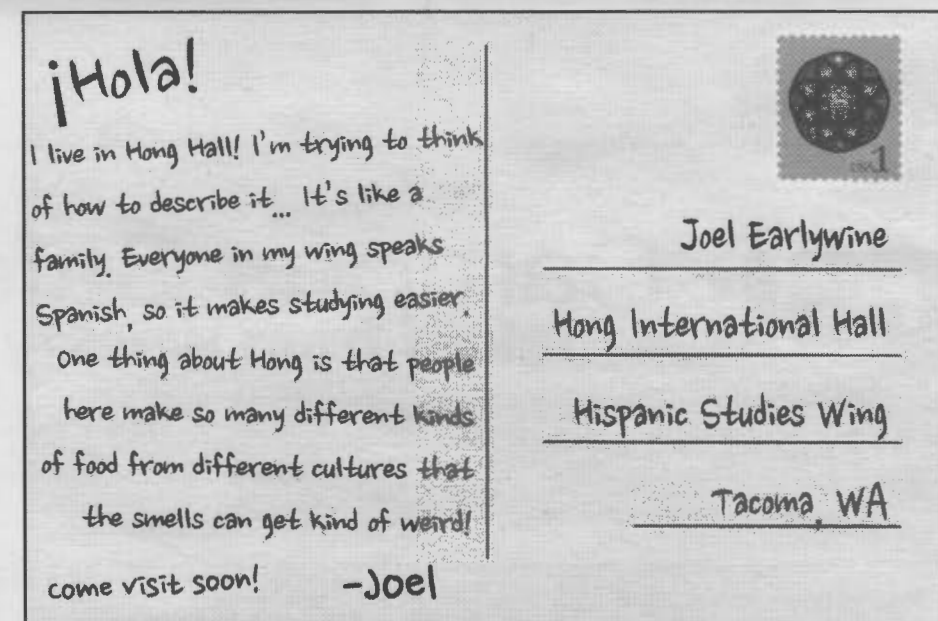 ¡Hola!
I live in Hong Hall! I'm trying to think
of how to describe it... It's like a
family. Everyone in my wing speaks
Spanish, so it makes studying easier.
One thing about Hong is that people
here make so many different kinds
of food from different cultures that
the smells can get kind of weird!
come visit soon! -Joel
USA 1
Joel Earlywine
Hong International Hall
Hispanic Studies Wing
Tacoma, WA